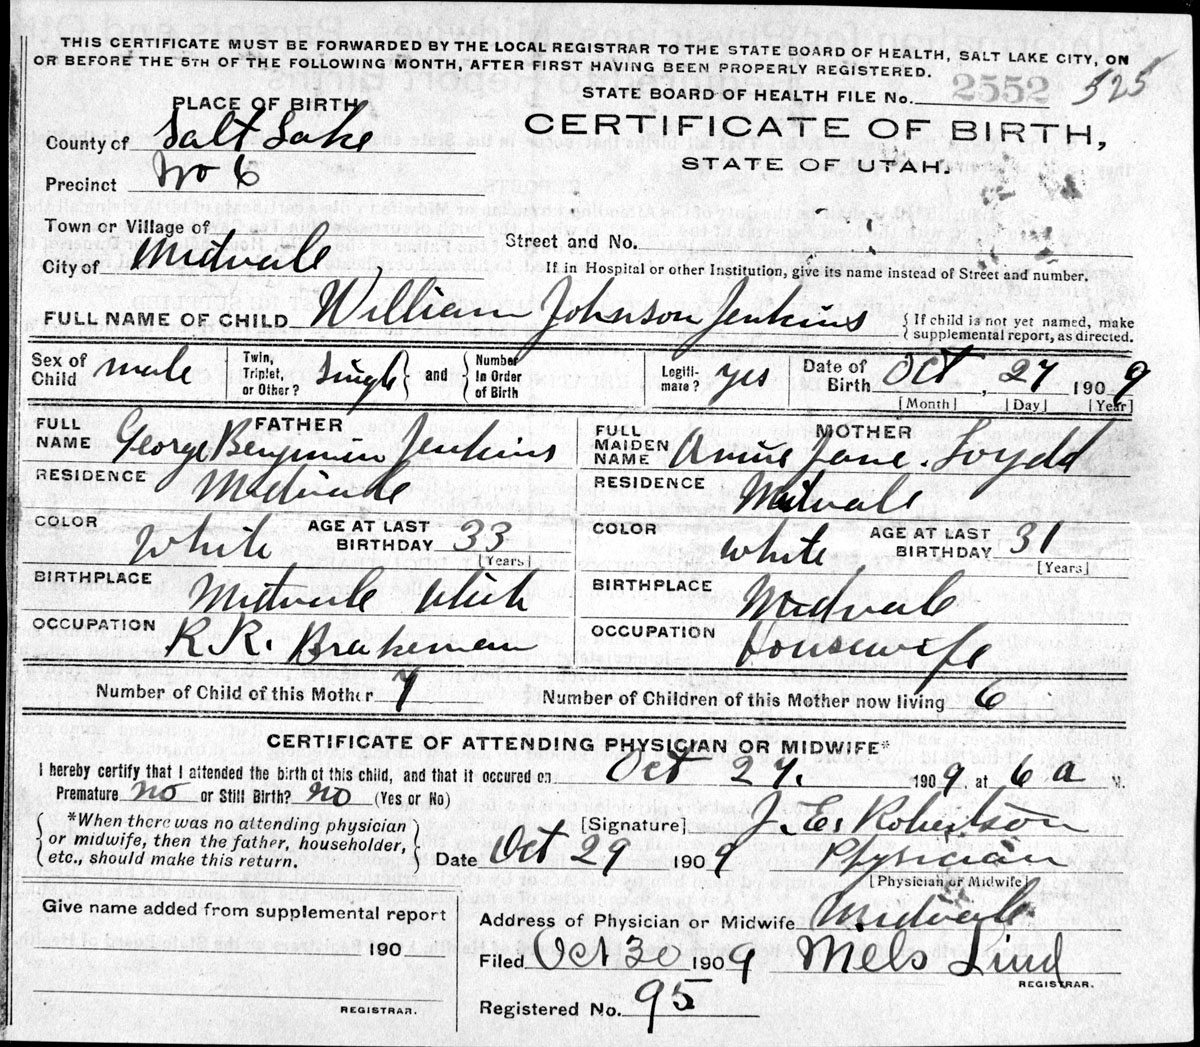 THIS CERTIFICATE MUST BE FORWARDED BY THE LOCAL REGISTRAR TO THE STATE BOARD OF HEALTH, SALT LAKE CITY, ON
OR BEFORE THE 5TH OF THE FOLLOWING MONTH, AFTER FIRST HAVING BEEN PROPERLY REGISTERED.
STATE BOARD OF HEALTH FILE No. 2552 525
PLACE OF BIRTH
CERTIFICATE OF BIRTH,
County of Salt Lake
STATE OF UTAH.
Precinct No 6
Town or Village of
Street and No.
City of Midvale
If in Hospital or other Institution, give its name instead of Street and number.
FULL NAME OF CHILD William Johnson Jenkins { If child is not yet named, make supplemental report, as directed.
Sex of Child male Twin, Triplet, or Other? Single } and { Number in Order of Birth Legitimate? yes Date of Birth Oct, 27 1909
[Month] [Day] [Year]
FATHER
FULL NAME George Benjamin Jenkins
RESIDENCE Midvale
COLOR White AGE AT LAST BIRTHDAY 33
[Years]
BIRTHPLACE Midvale Utah
OCCUPATION R.R. Brakeman
MOTHER
FULL MAIDEN NAME Annie Jane Loydd
RESIDENCE Midvale
COLOR White AGE AT LAST BIRTHDAY 31
[Years]
BIRTHPLACE Midvale
OCCUPATION Housewife
Number of Child of this Mother 7 Number of Children of this Mother now living 6
CERTIFICATE OF ATTENDING PHYSICIAN OR MIDWIFE*
I hereby certify that I attended the birth of this child, and that it occured on Oct 27. 1909 at 6 a M.
Premature no or Still Birth? no (Yes or No)
{ *When there was no attending physician
or midwife, then the father, householder,
etc., should make this return. }
[Signature] J. E. Robertson
Date Oct 29 1909 Physician
[Physician or Midwife]
Give name added from supplemental report
190
REGISTRAR.
Address of Physician or Midwife Midvale
Filed Oct 30 1909 Mels Lind
REGISTRAR.
Registered No. 95